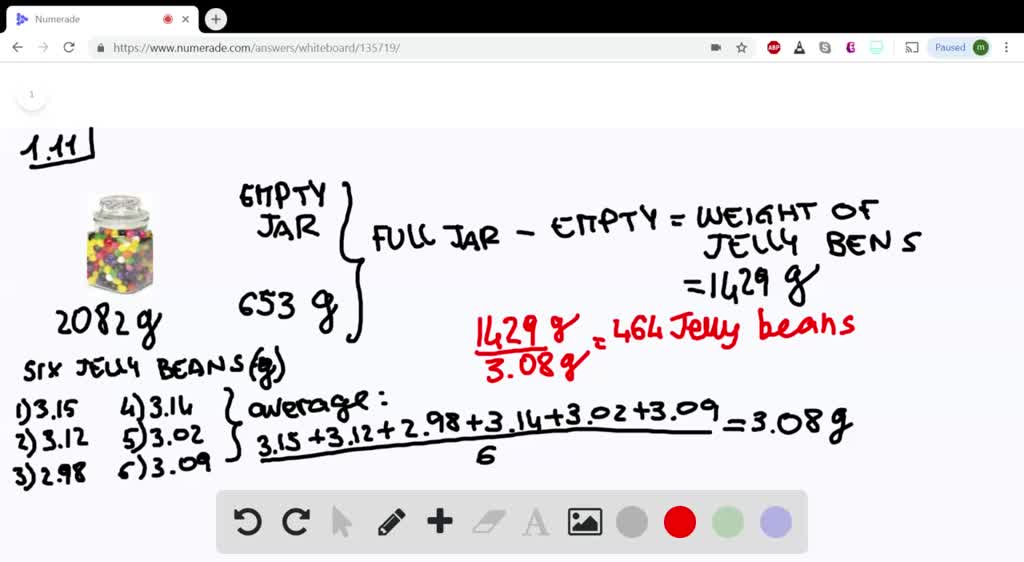 Numerade
https://www.numerade.com/answers/whiteboard/135719/
ABP
Paused
m
1
1.11
EMPTY
JAR
FULL JAR - EMPTY = WEIGHT OF
JELLY BENS
= 1429 g
653 g
2082 g
1429 g / 3.08 g = 464 Jelly beans
SIX JELLY BEANS (g)
1) 3.15 4) 3.14
2) 3.12 5) 3.02
3) 2.98 6) 3.09
average:
3.15 + 3.12 + 2.98 + 3.14 + 3.02 + 3.09 = 3.08 g
6
A